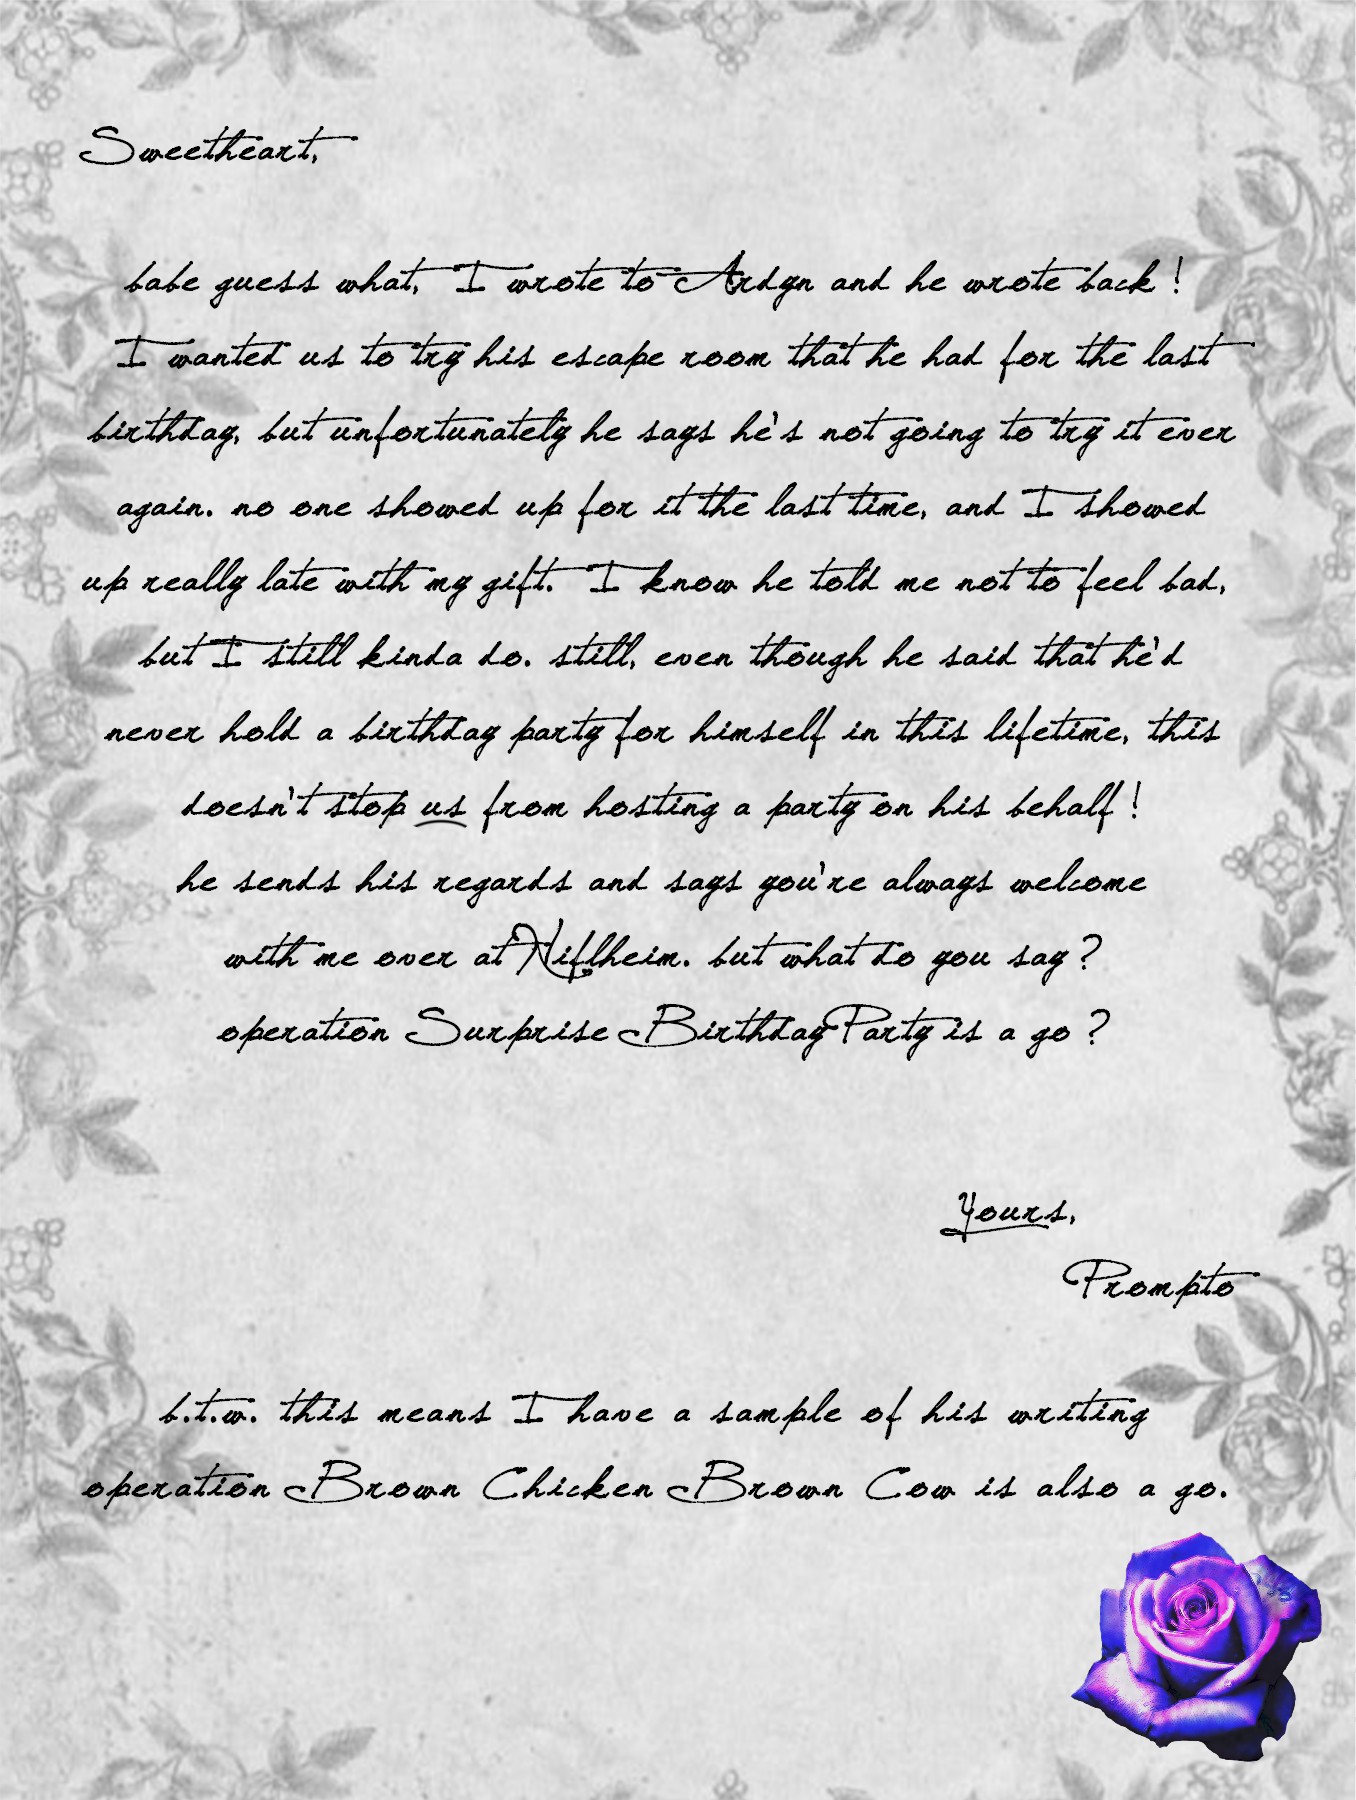 Sweetheart,
babe guess what, I wrote to Ardyn and he wrote back!
I wanted us to try his escape room that he had for the last
birthday, but unfortunately he says he's not going to try it ever
again. no one showed up for it the last time, and I showed
up really late with my gift. I know he told me not to feel bad,
but I still kinda do. still, even though he said that he'd
never hold a birthday party for himself in this lifetime, this
doesn't stop us from hosting a party on his behalf!
he sends his regards and says you're always welcome
with me over at Niflheim. but what do you say?
operation Surprise Birthday Party is a go?
Yours,
Prompto
b.t.w. this means I have a sample of his writing
operation Brown Chicken Brown Cow is also a go.